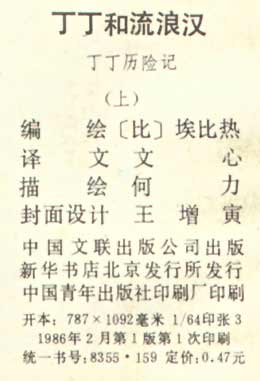 丁丁和流浪汉
丁丁历险记
（上）
编 绘〔比〕埃比热
译 文 文 心
描 绘 何 力
封面设计 王 增 寅
中国文联出版公司出版
新华书店北京发行所发行
中国青年出版社印刷厂印刷
开本：787×1092毫米 1/64印张3
1986年2月第1版第1次印刷
统一书号：8355·159 定价：0.47元